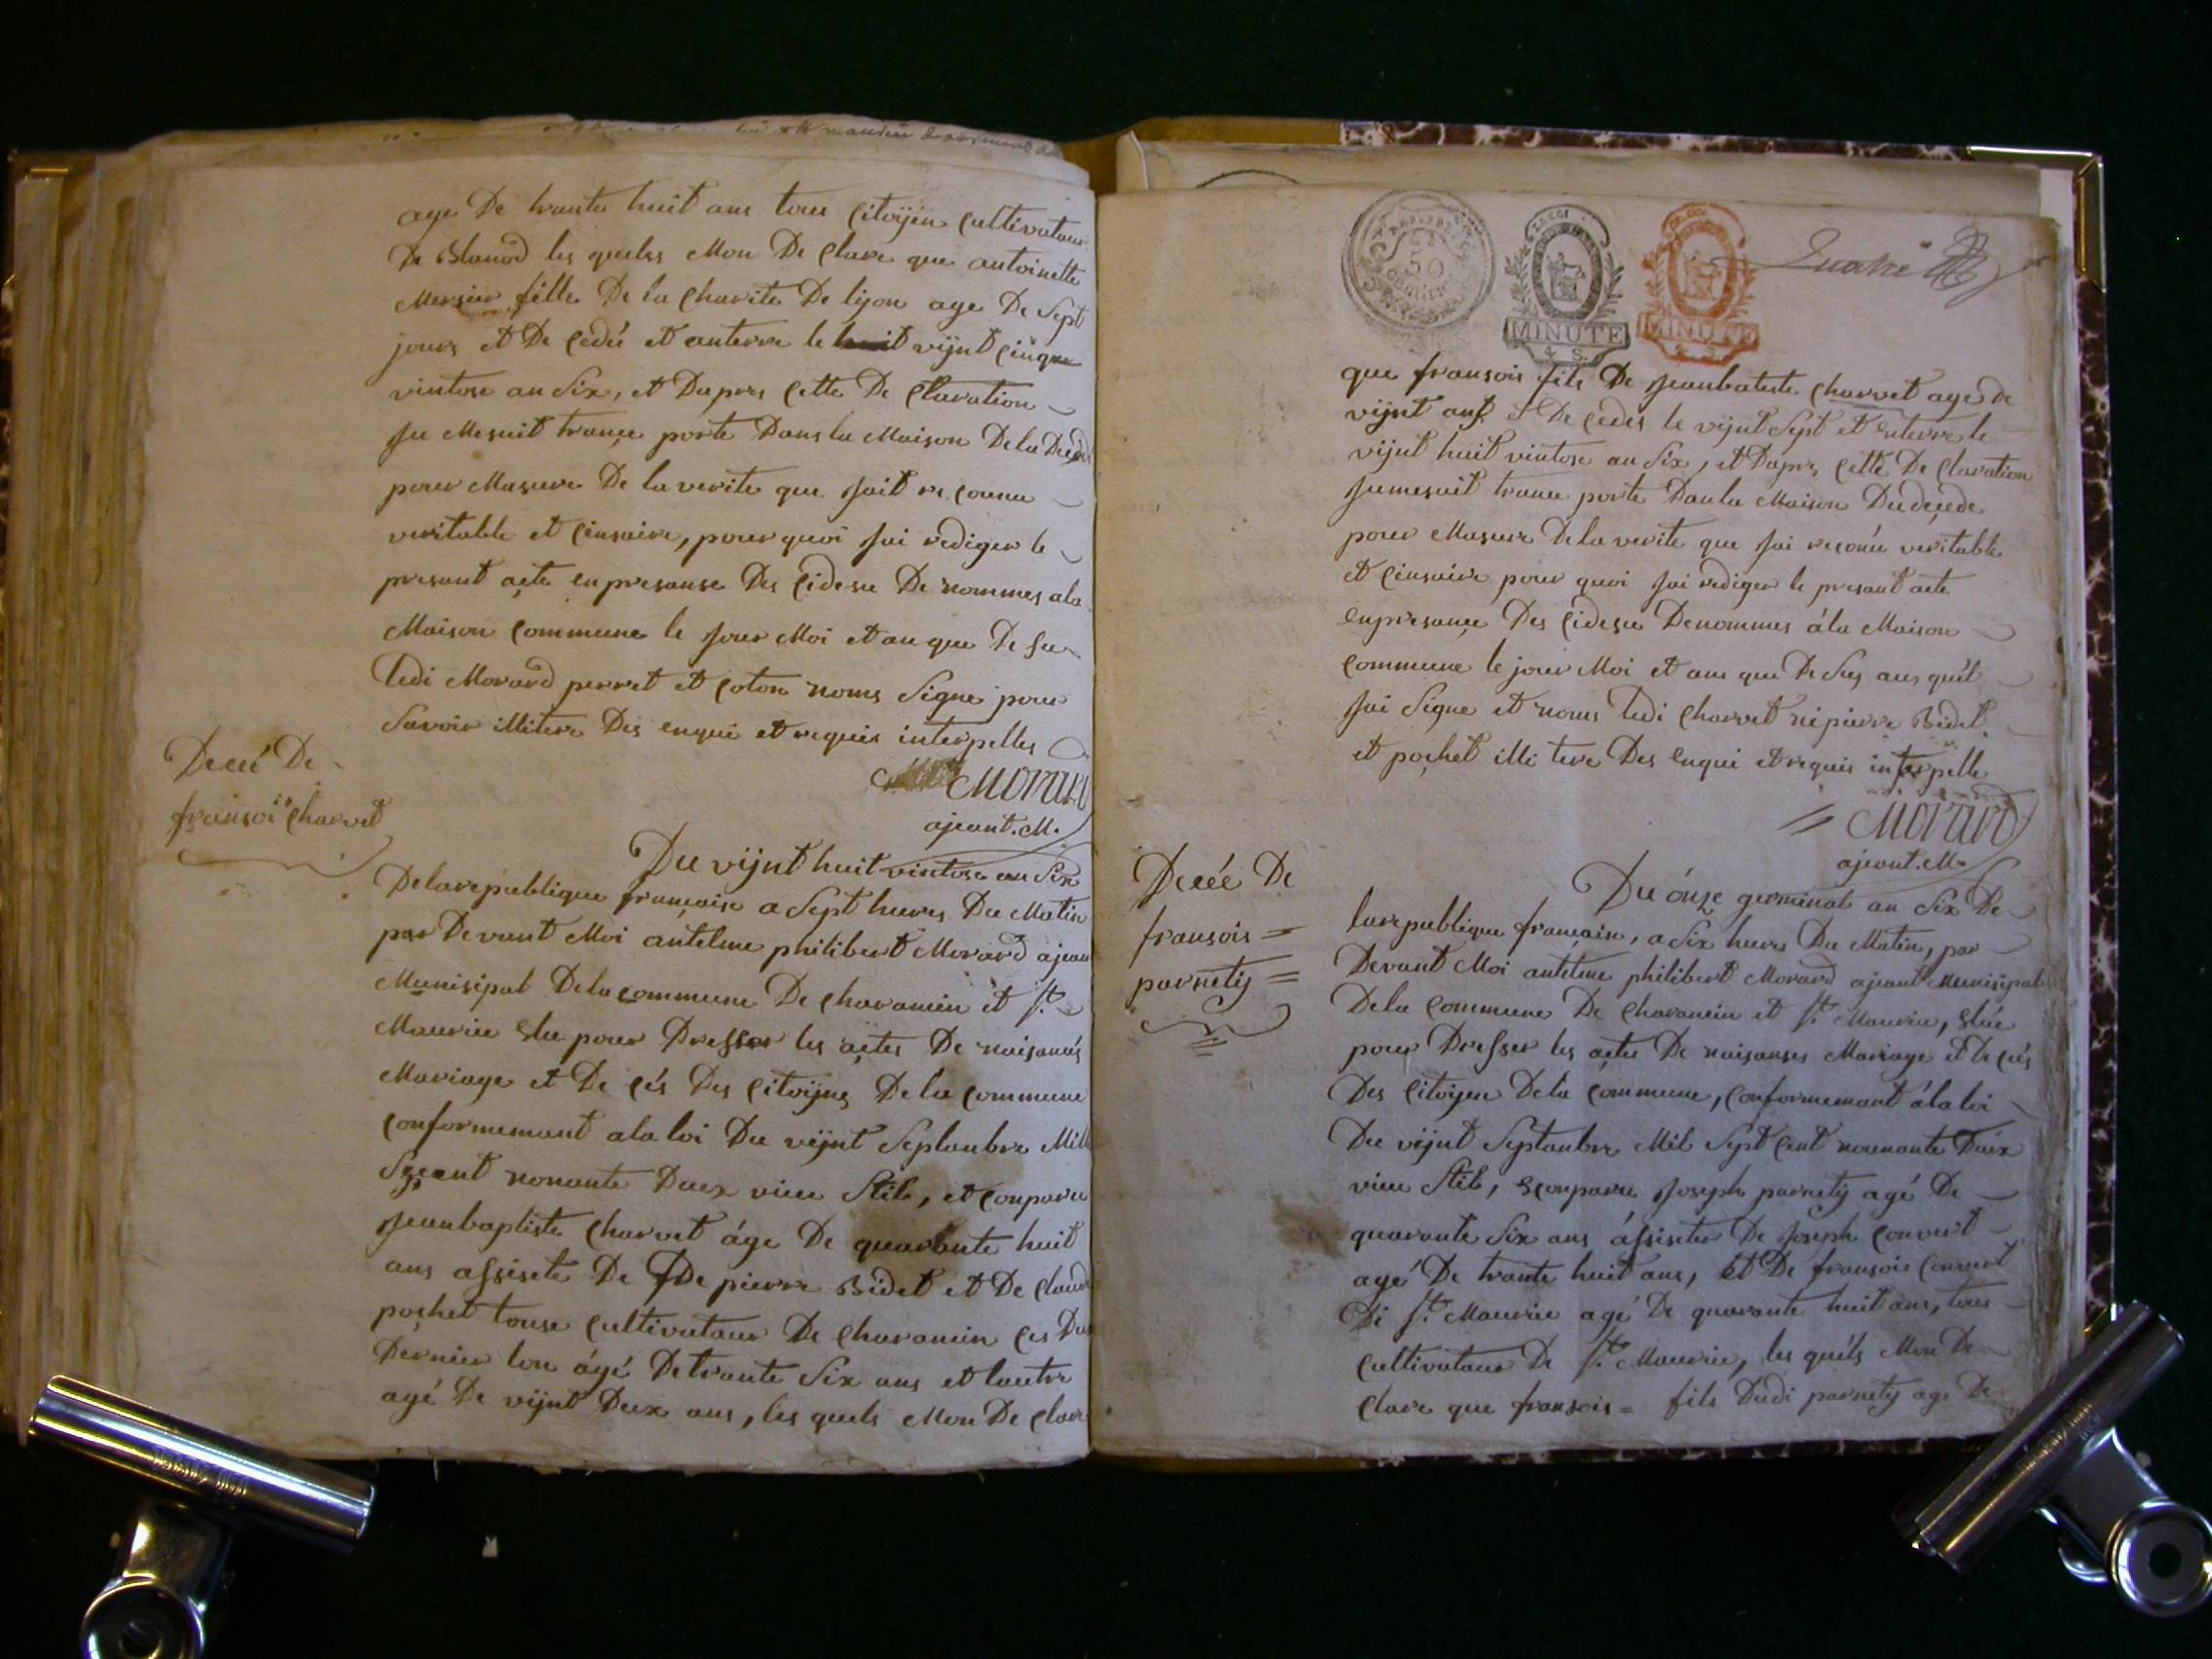 age De trante huit ans tous Citoÿen Cultivataur
De Blanod les quelss Mon De Clare que antoinette
Mersier fille De la Charite De lijon age De Sept
jours et De Cedé et anterre le vijnt Cinque
vintose an Six, et Dapres Cette De Claration
Je Mesuit trançe porte Dans la Maison De la
pour Masure De la verite que Jait re Connu
veritable et Cinsaire, pour quoi Jai rediger le
presant açte enpresanse Des Cidesu De nommes ala
Maison Commune le Jour Moi et an que De su
Ledi Morard perret et Coton noms Signe pour
Savoir illitere Des enqui et requis interpelles
Morard
ajeant. M.
Deeé De
fransois Charvet
Du vijnt huit vintose an Six
Delarepublique françaisse a Sept hures Du Matin
par Devant Moi antelme philibert Morard ajean
Munisipal Dela commune De Charancin et St.
Maurice Elu pour Dresser les açtes De naisancés
Mariage et De Cés Des Citoÿns De la Commune
Conformemant ala loi Du vijnt Septanbre Mill
Sçeant nonante Deux vieu Stile, et Conparu
Jeanbaptiste Charvet áge De quarante huit
ans assisete De De pierre Bidet et De Claude
poçhet touse Cultivataur De Charancin Ces Deu
Dernier lon ágé Detrante Six ans et lautre
agé De vijnt Deux ans, les quels Mon De Clare
50
MINUTE
4 S.
MINUTE
Quatre
que fransois fils De Jeanbateste Charvet age de
vijnt ans et De Cedes le vijnt Sept et Enterre le
vijnt huit vintose an Six, et Dapres Cette De Claration
Jumesuit trance porte Dan la Maison Dudeçede
pour Masure Dela verite que Jai reconu veritable
et Cinsaire pour quoi Jai rediger le presant acte
enpresançe Des Cidesu Denommes ála Maison
Commune le jour Moi et ans que De Sus ans quél
Jai Signe et noms Ledi Charvet ni pierre Bidet
et poçhet illi tere Des enqui et requis interpelle
Morard
ajeant. M.
Deeeé De
fransois =
parnetij =
Du ónze germinal an Six De
larepublique françaisse, a Six hures Du Matin, par
Devant Moi antelme philibert Morard ajeant Munisipal
Dela Commune De Charancin et St. Maurice, Elúe
pour Dresser les açtes De naisanses Mariage et De Cés
Des Citoijen Dela Commune, Conformemant ála loi
Du vijnt Septanbre Mil Sept Cent nonante Deux
vieu Stile, Conparu Joseph parnetij agé De
quarante Six ans ássiseter De Joseph Convert
agé De trante huit ans, et De fransois Convert
Di St. Maurice agé De quarante huit ans, tous
Cultivataur De St. Maurice, les quéls Mon De
Clare que fransois = fils Dudi parnetij age De